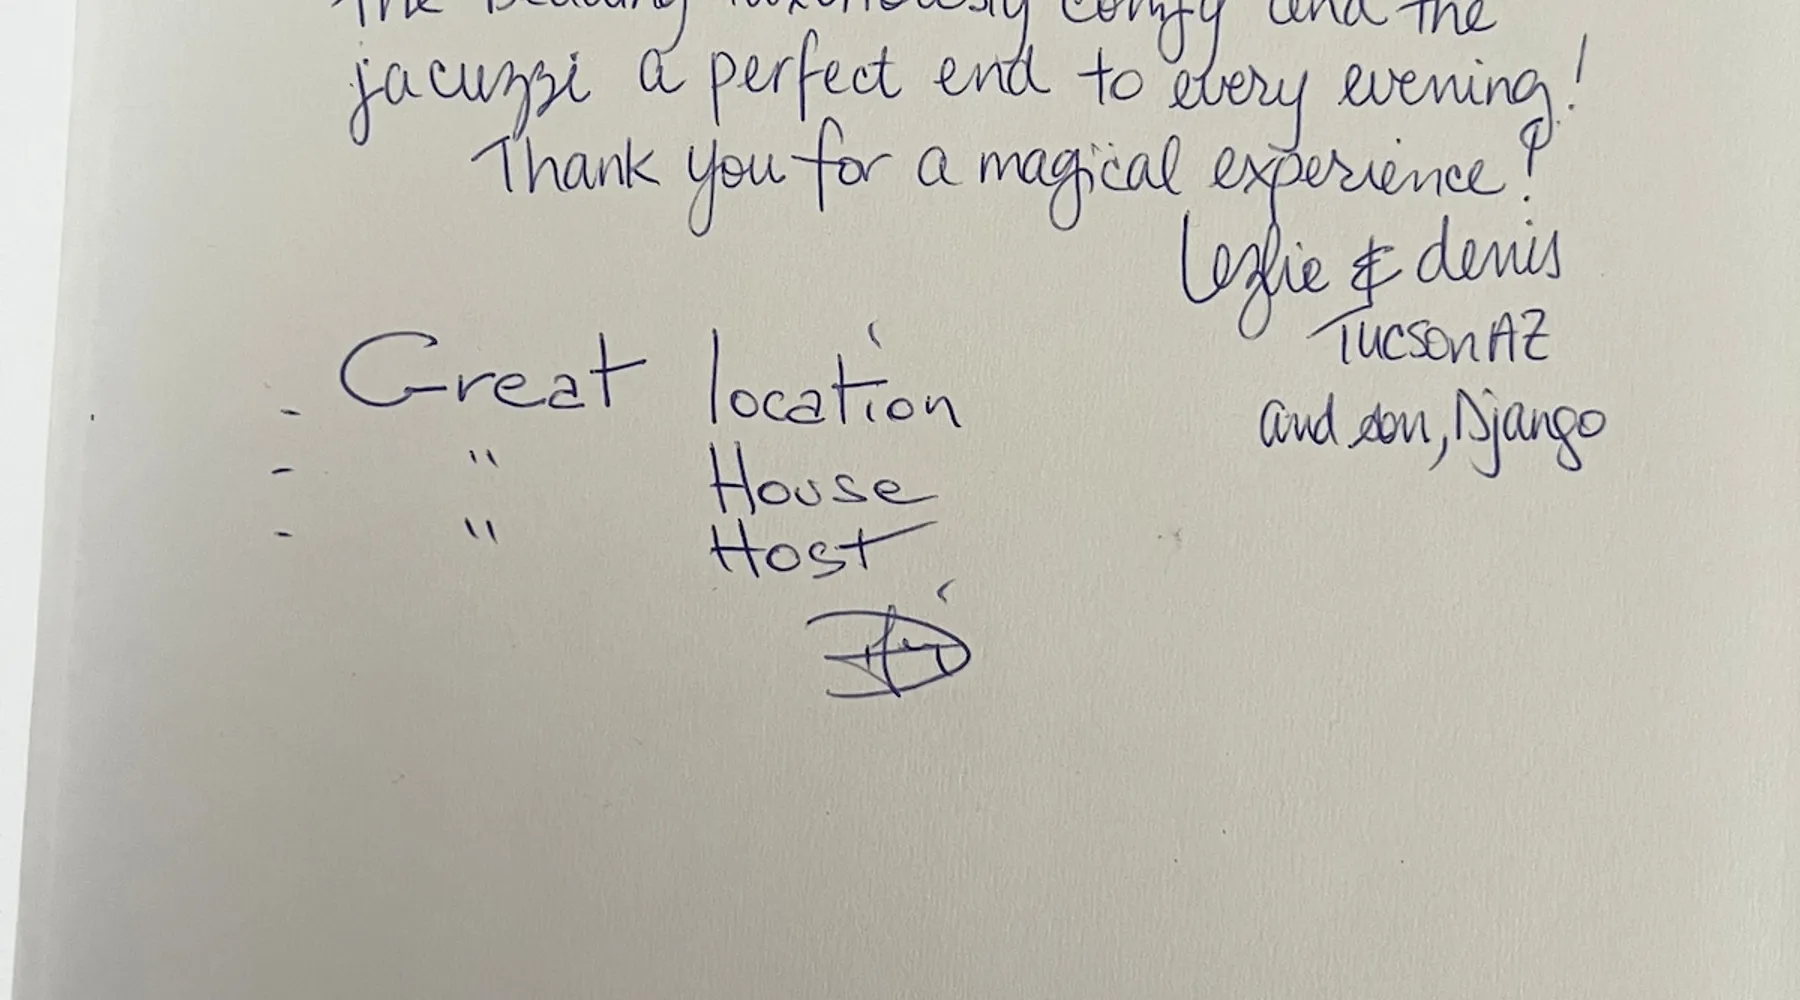 The bedding luxuriously comfy and the
jacuzzi a perfect end to every evening!
Thank you for a magical experience!
Lezlie & denis
Tucson AZ
and son, Django
- Great location
- " House
- " Host